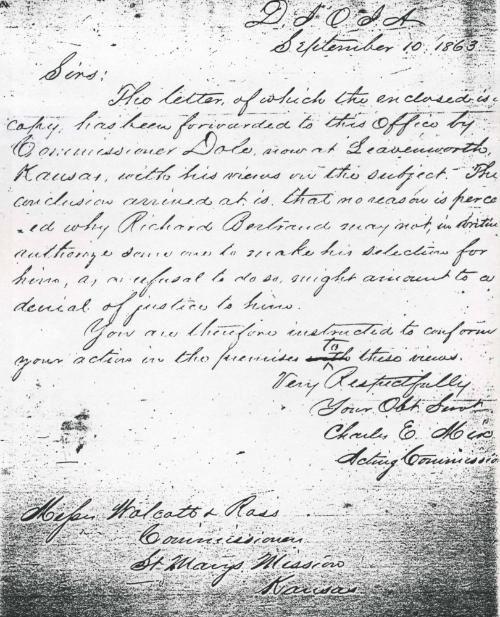 D I O I A
September 10, 1863
Sirs:
The letter, of which the enclosed is
copy, has been forwarded to this Office by
Commissioner Dole, now at Leavenworth,
Kansas, with his views on the subject. The
conclusion arrived at is, that no reason is perce
ed why Richard Bertrand may not, in writin
authorize some one to make his selection for
him, as a refusal to do so, might amount to a
denial of justice to him.
You are therefore instructed to conform
your action in the premises to these views.
Very Respectfully
Your Obt Servt
Charles E. Mix
Acting Commissio
Messrs Wolcott & Ross
Commissioners
St Marys Mission
Kansas